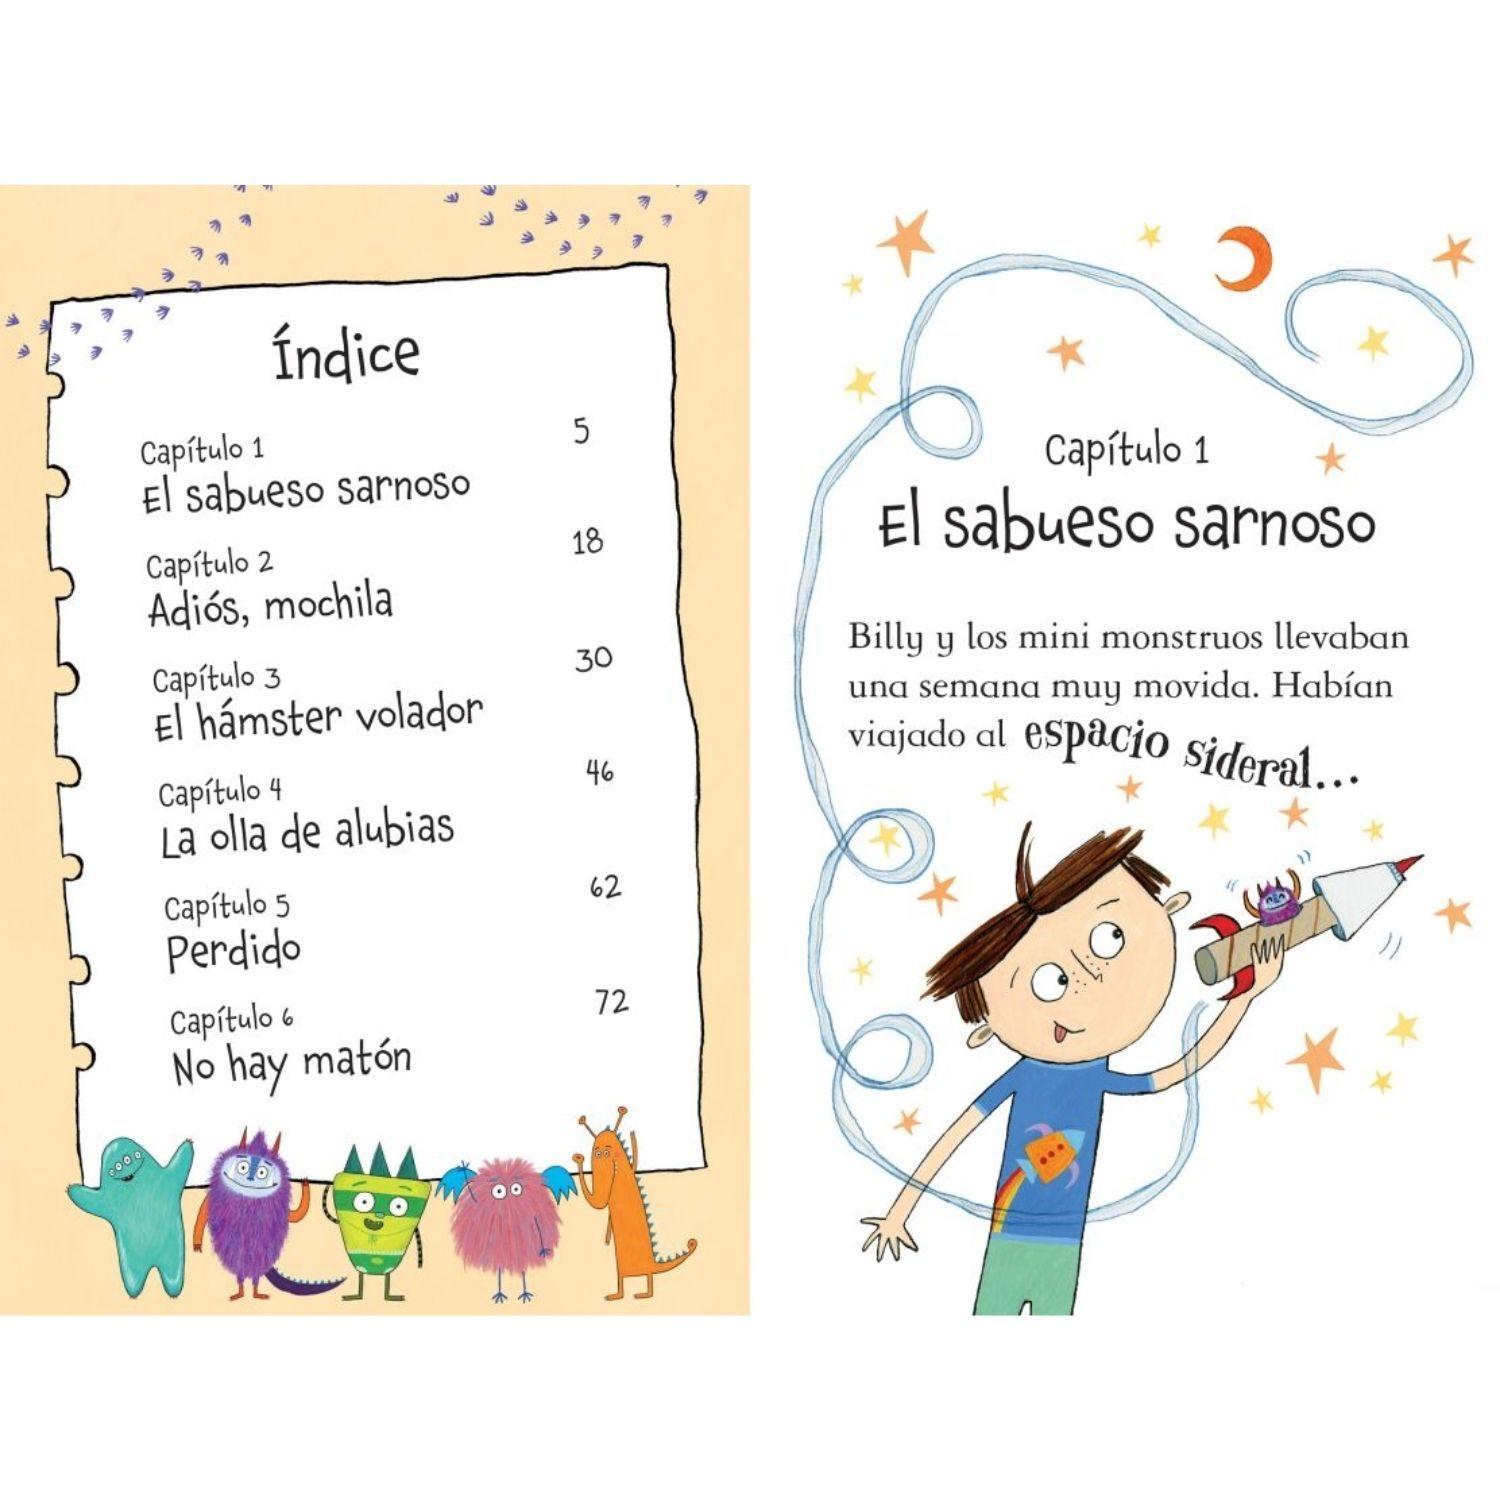 Índice
Capítulo 1 5
El sabueso sarnoso
Capítulo 2 18
Adiós, mochila
Capítulo 3 30
El hámster volador
Capítulo 4 46
La olla de alubias
Capítulo 5 62
Perdido
Capítulo 6 72
No hay matón
Capítulo 1
El sabueso sarnoso
Billy y los mini monstruos llevaban
una semana muy movida. Habían
viajado al espacio sideral...